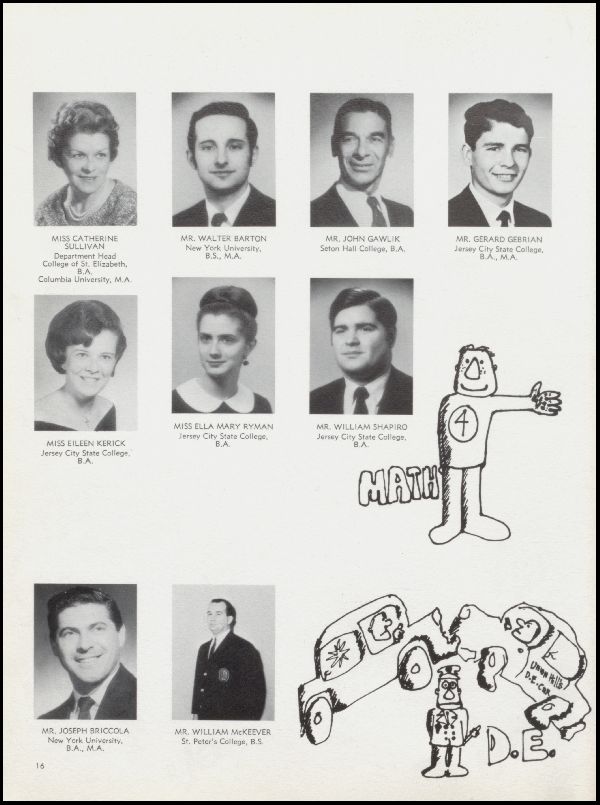 MISS CATHERINE
SULLIVAN
Department Head
College of St. Elizabeth,
B.A.
Columbia University, M.A.
MR. WALTER BARTON
New York University,
B.S., M.A.
MR. JOHN GAWLIK
Seton Hall College, B.A.
MR. GERARD GEBRIAN
Jersey City State College,
B.A., M.A.
MISS EILEEN KERICK
Jersey City State College,
B.A.
MISS ELLA MARY RYMAN
Jersey City State College,
B.A.
MR. WILLIAM SHAPIRO
Jersey City State College,
B.A.
4
MATH
MR. JOSEPH BRICCOLA
New York University,
B.A., M.A.
MR. WILLIAM McKEEVER
St. Peter's College, B.S.
Union Hill's
D.E. Car
D.E.
16